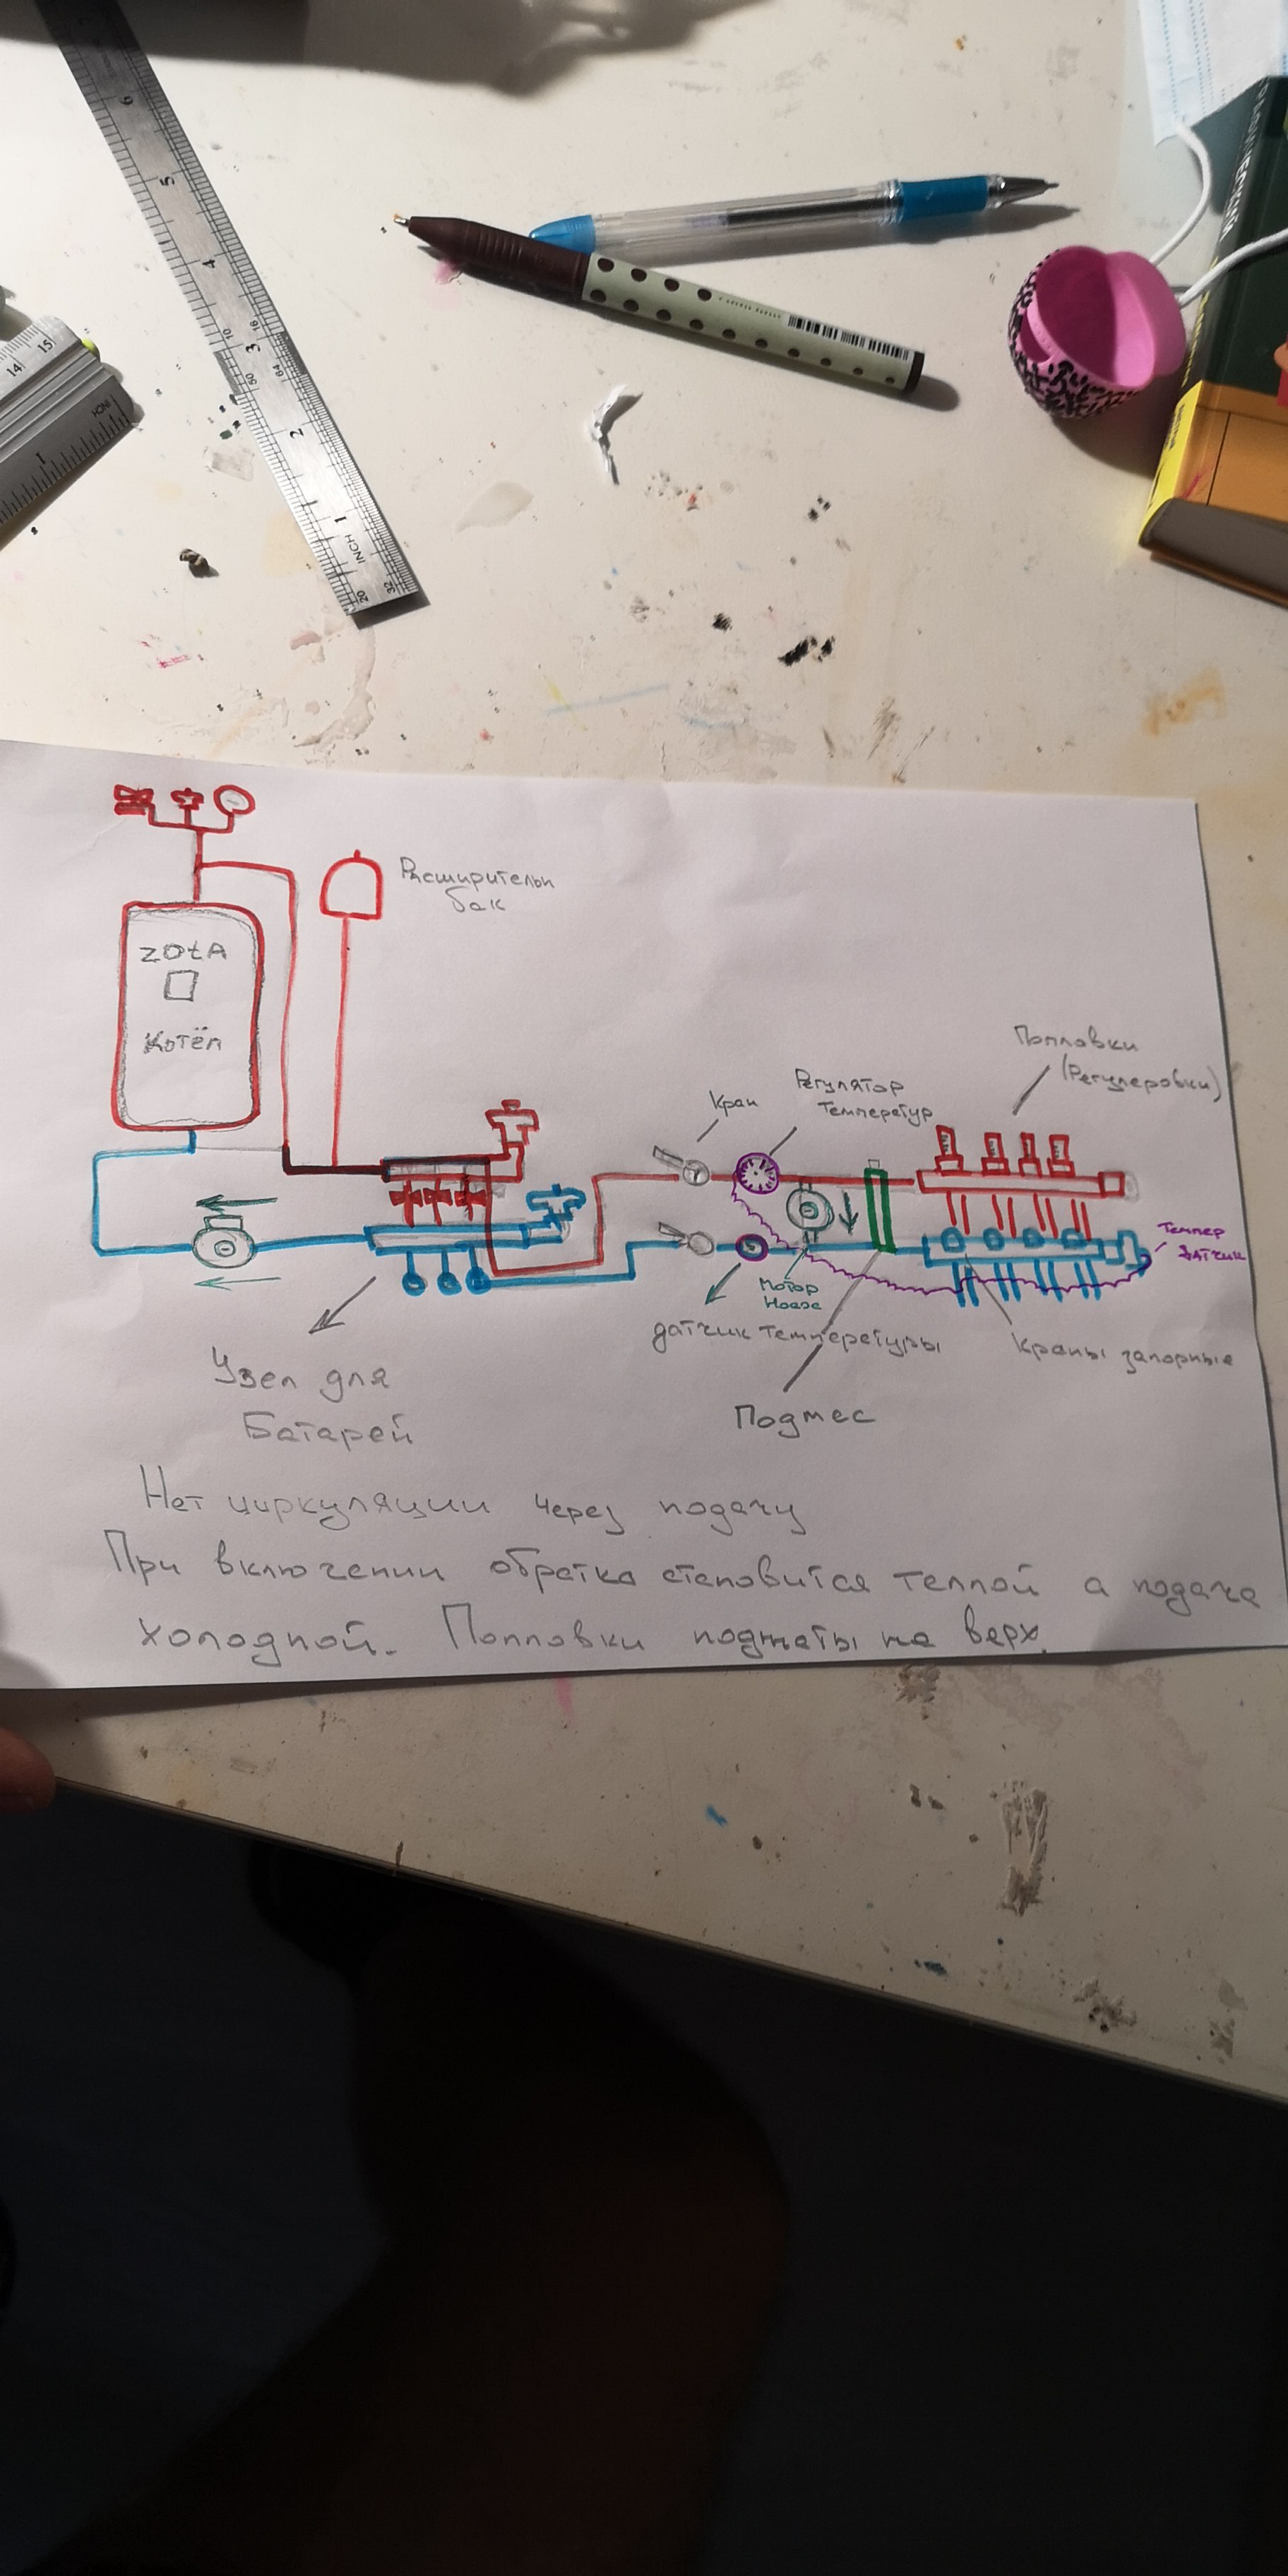 Расширительн
бак
ZOtA
Котёл
Поплавки
(Регулеровки)
Регулятор
температур
Кран
Темпер
датчик
Мотор
датчик температуры
Краны запорные
Подмес
Узел для
Батарей
Нет циркуляции через подачу
При включении обратка становится теплой а подача
холодной. Поплавки поджаты на верх.
INCH
INCH
6
5
4
3
2
1
14
15
1